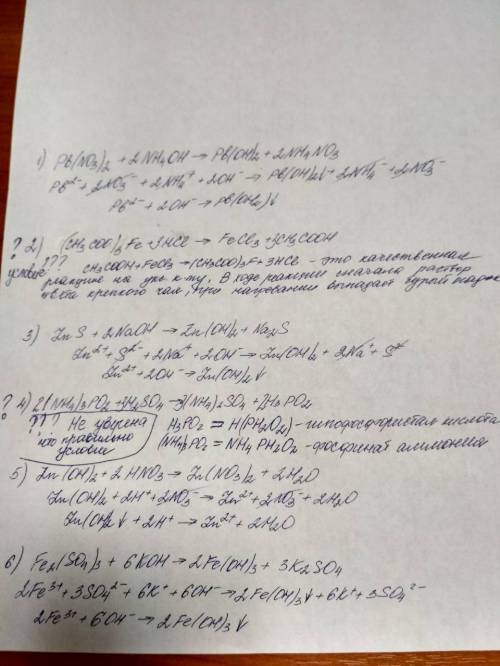 1) Pb(NO3)2 + 2NH4OH → Pb(OH)2 + 2NH4NO3
Pb2+ + 2NO3- + 2NH4+ + 2OH- → Pb(OH)2↓ + 2NH4- + 2NO3-
Pb2- + 2OH- → Pb(OH2)↓
? 2) (CH3COO)3Fe + 3HCl → FeCl3 + 3CH3COOH
условие ??? CH3COOH + FeCl3 → (CH3COO)3F + 3HCl - это качественная
реакция на укс к-ту. В ходе реакции сначала раствор
цвета крепкого чая, при нагревании выпадает бурый осадок
3) ZnS + 2NaOH → Zn(OH)2 + Na2S
Zn2+ + S2- + 2Na+ + 2OH- → Zn(OH)2 + 2Na+ + S2-
Zn2+ + 2OH- → Zn(OH)2↓
? 4) 2(NH4)3PO2 + 3H2SO4 → 3(NH4)2SO4 + 2H3PO2
??? Не уверена H3PO2 = H(PH2O2) - гипофосфористая кислота
что правильно (NH4)3PO2 = NH4PH2O2 - аммония
условие
5) Zn(OH)2 + 2HNO3 → Zn(NO3)2 + 2H2O
Zn(OH)2 + 2H+ + 2NO3- → Zn2+ + 2NO3- + 2H2O
Zn(OH)2↓ + 2H+ → Zn2+ + 2H2O
6) Fe2(SO4)3 + 6KOH → 2Fe(OH)3 + 3K2SO4
2Fe3+ + 3SO42- + 6K+ + 6OH- → 2Fe(OH)3↓ + 6K+ + 3SO42-
2Fe3+ + 6OH- → 2Fe(OH)3↓